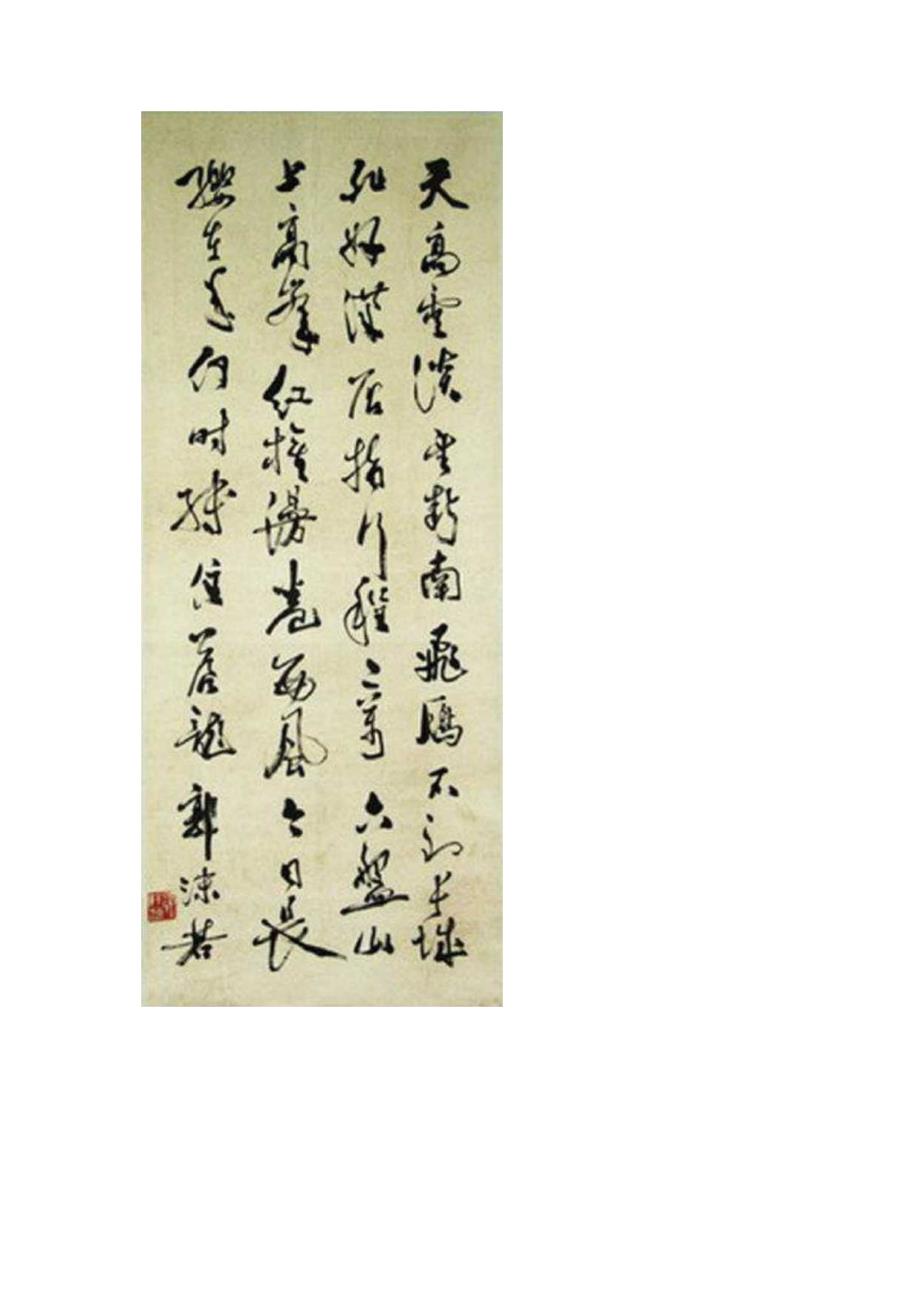 天高雲淡望斷南飛鴈不到长城
非好漢屈指行程二萬六盤山
上高峯紅旗漫卷西風今日長
纓在手何时縛住蒼龍郭沫若